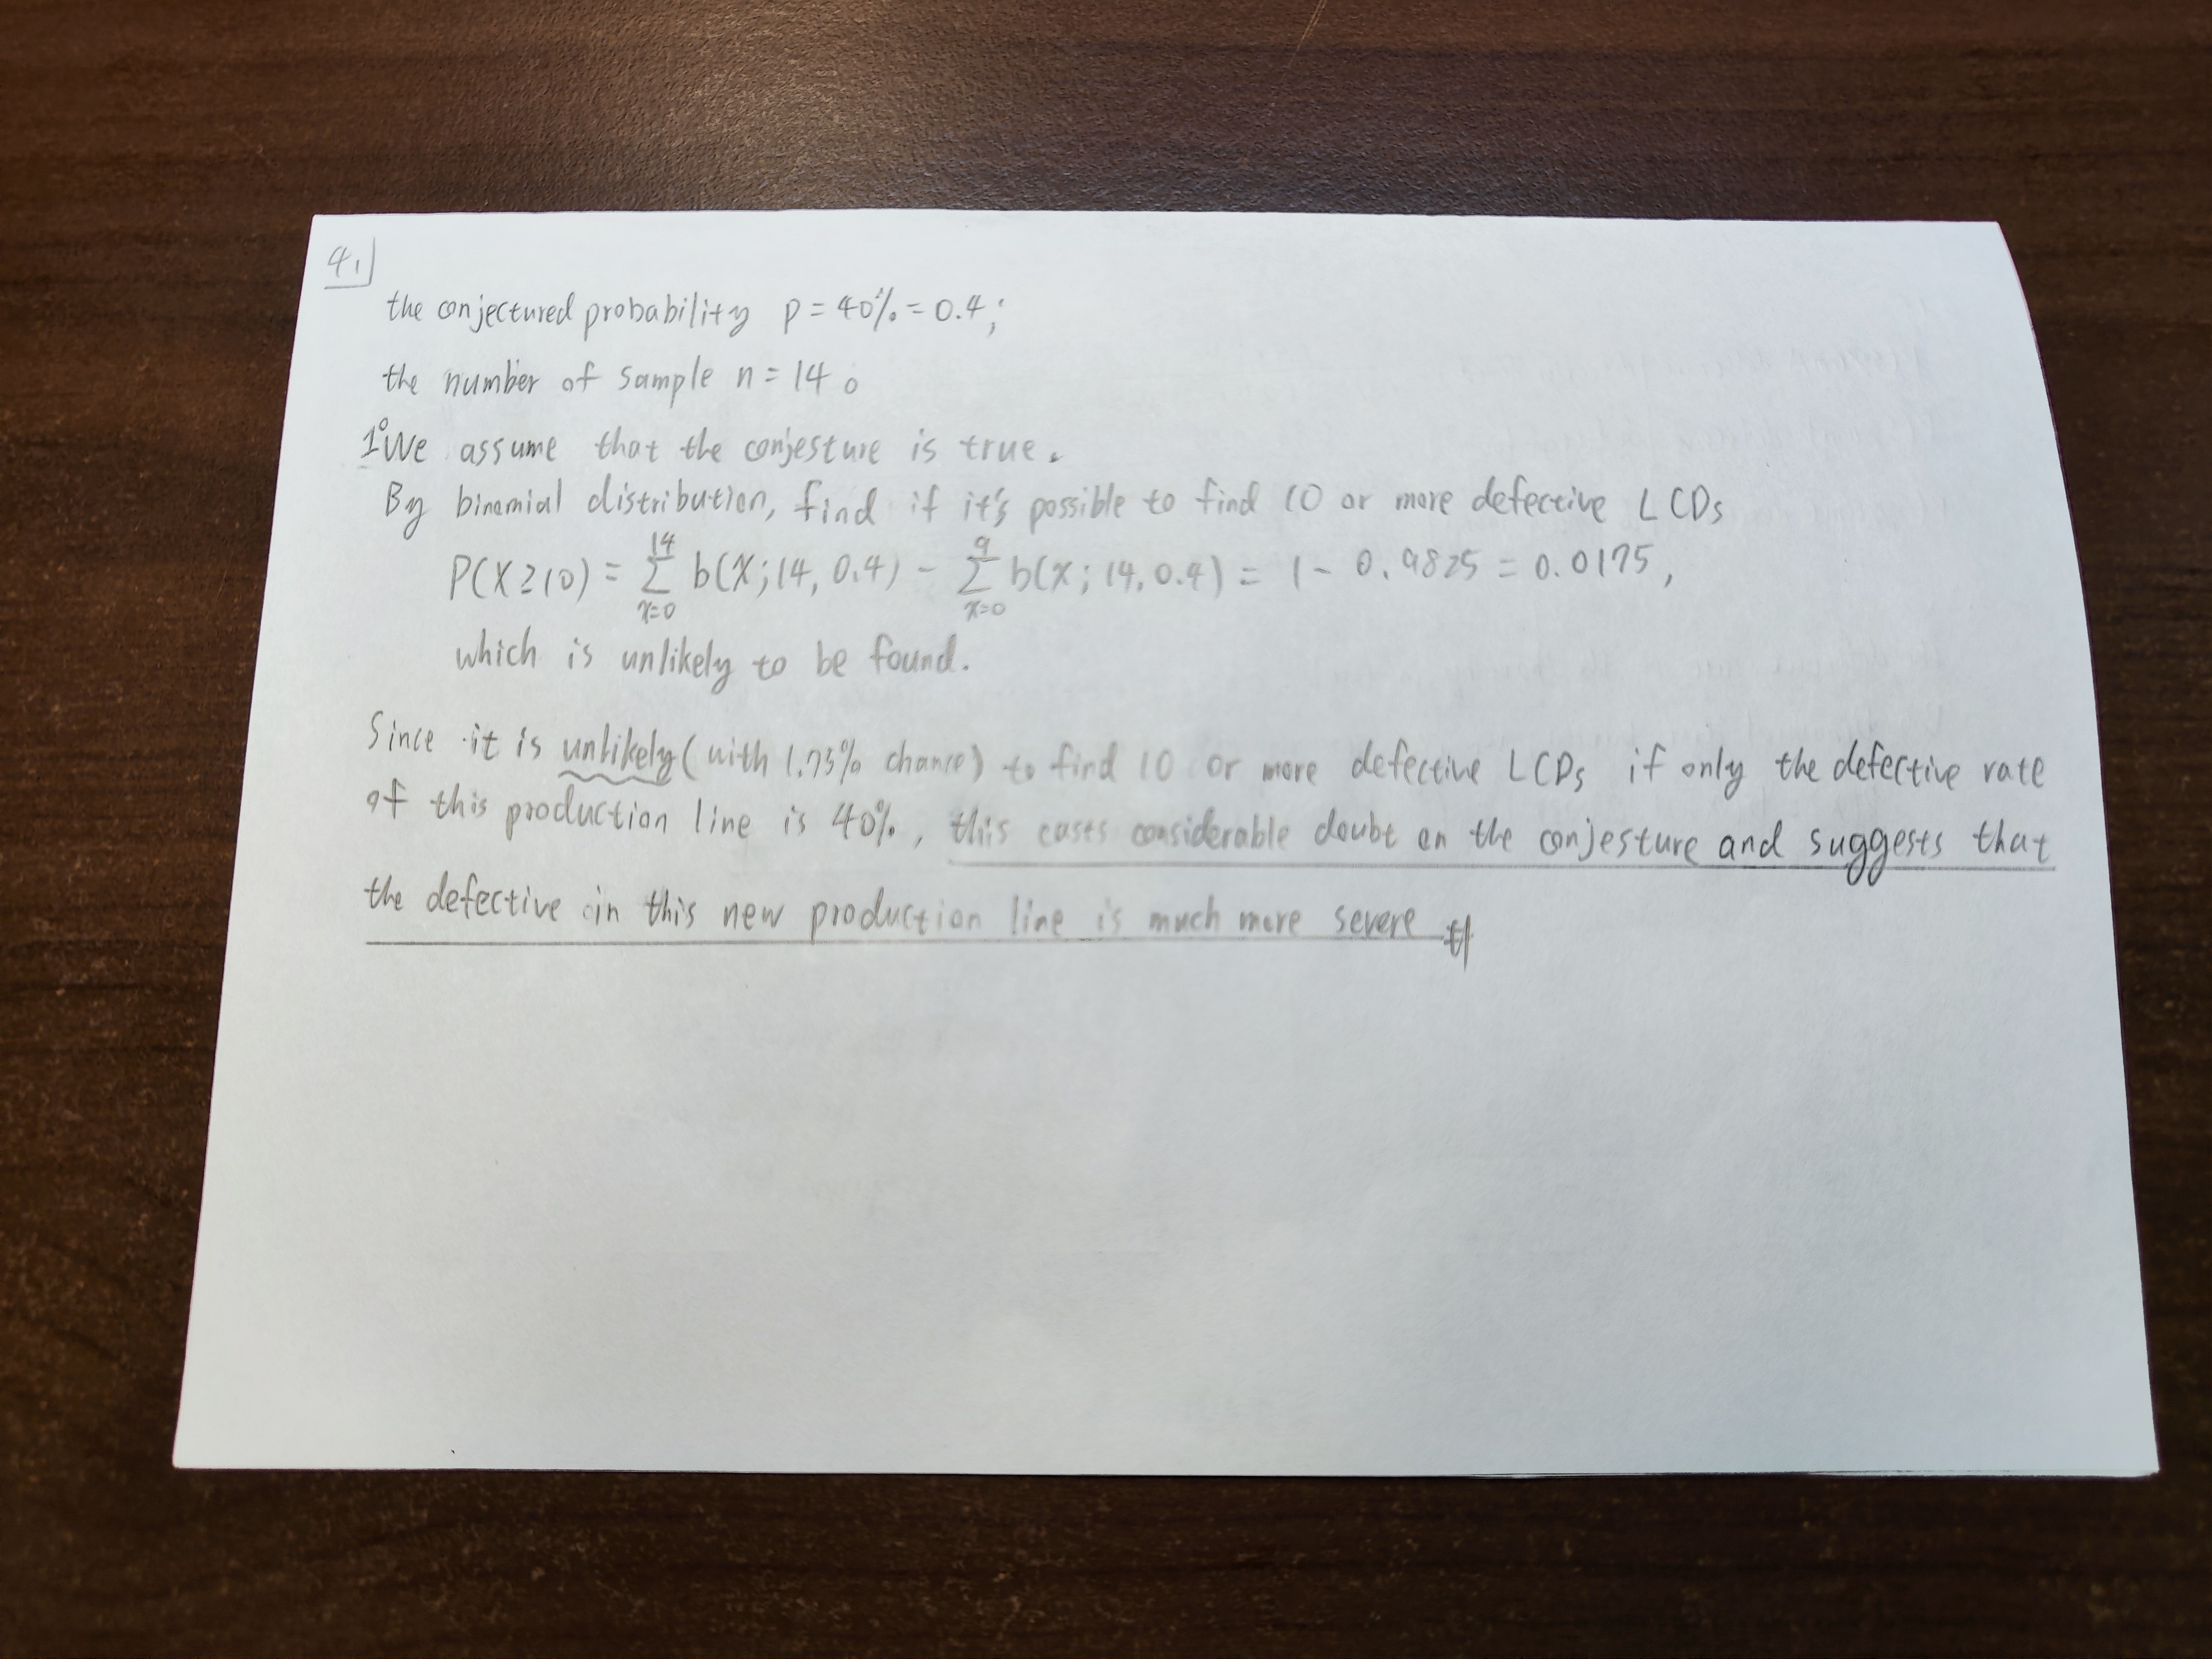 4.
the conjectured probability p = 40% = 0.4;
the number of sample n = 14。
1° We assume that the conjesture is true.
By binomial distribution, find if it's possible to find 10 or more defective LCDs
P(X≥10) = Σ_{x=0}^{14} b(x;14, 0.4) - Σ_{x=0}^{9} b(x; 14, 0.4) = 1 - 0.9825 = 0.0175,
which is unlikely to be found.
Since it is unlikely (with 1.75% chance) to find 10 or more defective LCDs if only the defective rate
of this production line is 40%, this cases considerable doubt on the conjesture and suggests that
the defective in this new production line is much more severe #